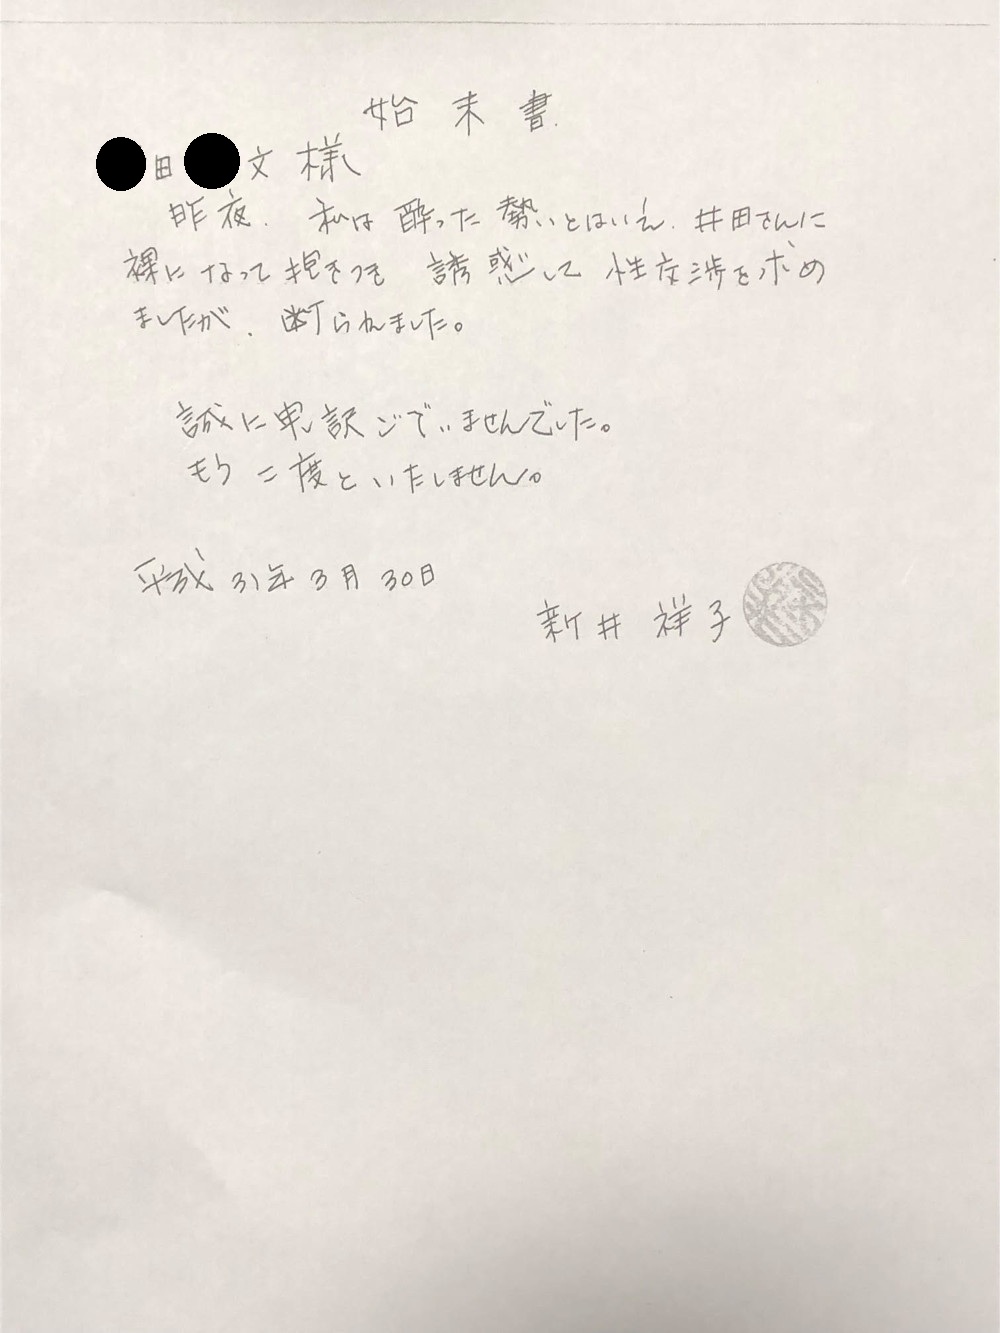 始末書
田 文様
昨夜、私は酔った勢いとはいえ、井田さんに
裸になって抱きつき 誘惑して 性交渉を求め
ましたが、断られました。
誠に申し訳ございませんでした。
もう二度といたしません。
平成31年3月30日
新井 祥子